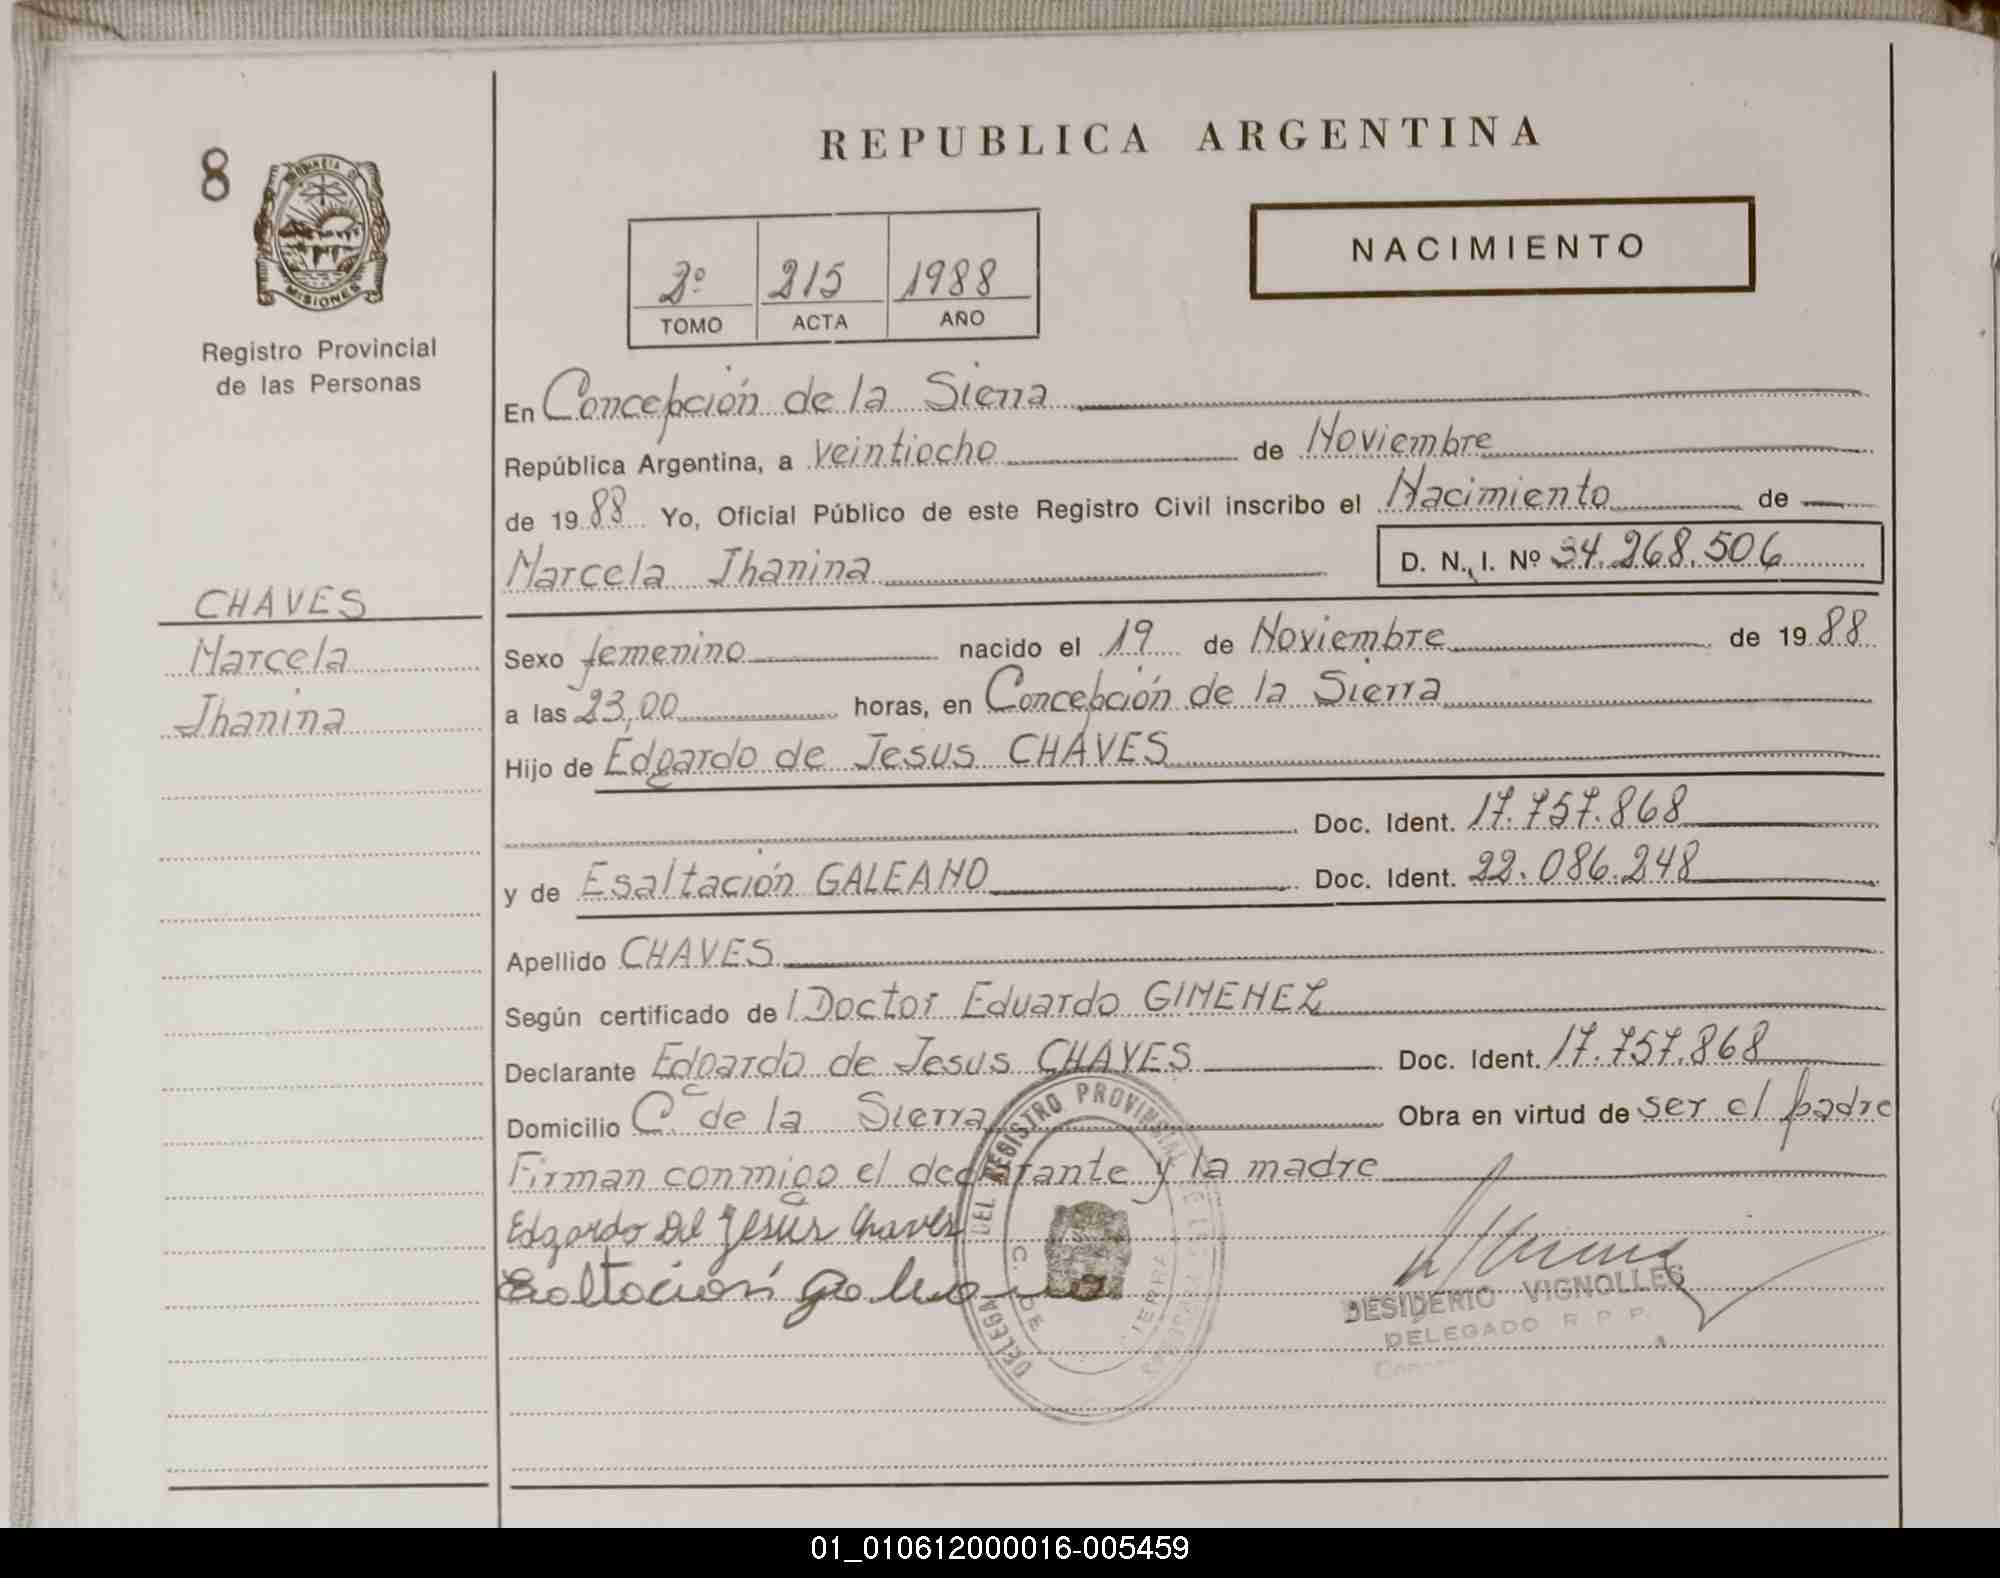 REPUBLICA ARGENTINA
8
PROVINCIA DE
MISIONES
Registro Provincial
de las Personas
2º 215 1988
TOMO ACTA AÑO
NACIMIENTO
CHAVES
Marcela
Jhanina
En Concepción de la Sierra
República Argentina, a veintiocho de Noviembre
de 1988 Yo, Oficial Público de este Registro Civil inscribo el Nacimiento de
Marcela Jhanina D. N. I. Nº 34.268.506
Sexo femenino nacido el 19 de Noviembre de 1988
a las 23,00 horas, en Concepción de la Sierra
Hijo de Edgardo de Jesus CHAVES
Doc. Ident. 17.757.868
y de Esaltación GALEANO Doc. Ident. 22.086.248
Apellido CHAVES
Según certificado de l Doctor Eduardo GIMENEZ
Declarante Edgardo de Jesus CHAVES Doc. Ident. 17.757.868
Domicilio C. de la Sierra Obra en virtud de ser el padre
Firman conmigo el declarante y la madre
Edgardo Del Jesús Chaves
Esaltación Galeano
DEL REGISTRO PROVINCIAL
C. DE
SIERRA
DESIDERIO VIGNOLLES
DELEGADO R P P.
01_010612000016-005459